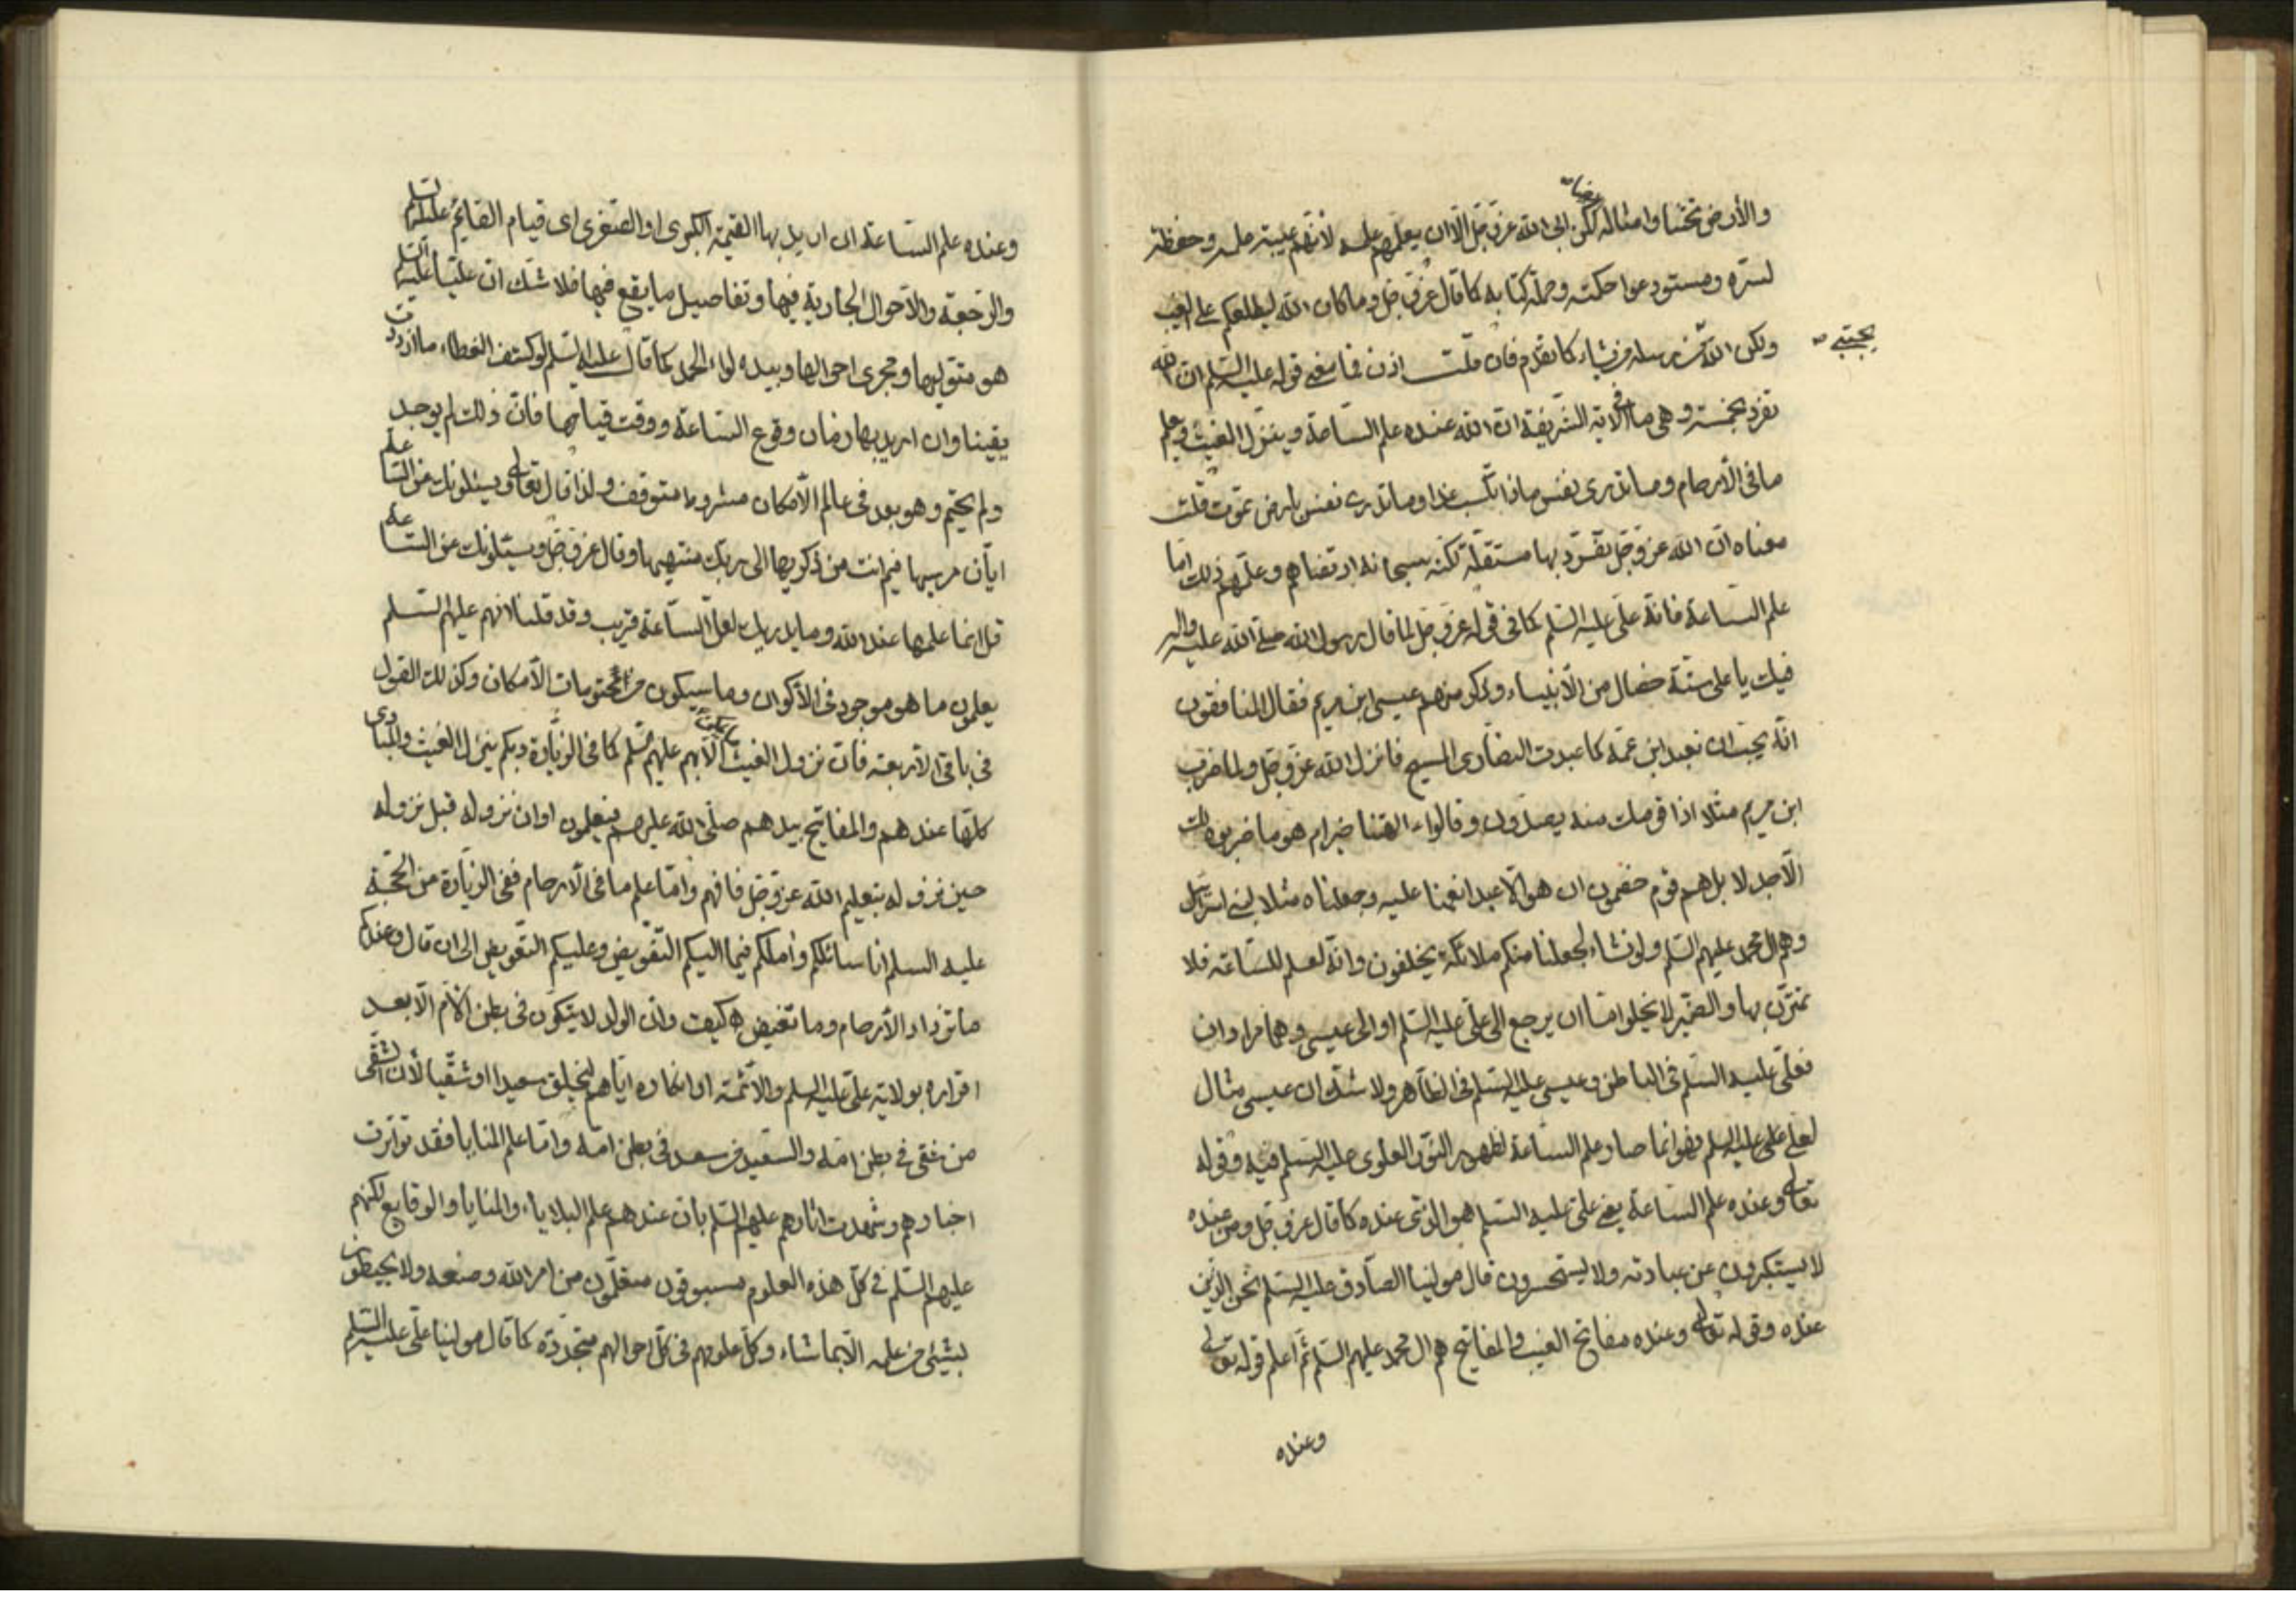 والأرض تختنا وامثاله لكن ابى الله عز وجل الا ان يعلمهم علمه لانهم عيبة علمه وحفظة
لسره ومستودعوا حكمته وحملة كتابه كما قال عز وجل وما كان الله ليطلعكم على الغيب
ولكن الله من رسله من يشاء كما تقدم فان قلت اذن فما معنى قوله عليه السلم ان الله
يجتبي
تفرد بخمسة وهي ما في الاية الشريفة ان الله عنده علم الساعة وينزل الغيث ويعلم
ما في الأرحام وما تدري نفس ماذا تكسب غدا وما تدري نفس باي ارض تموت قلت
معناه ان الله عز وجل تفرد بها مستقلة لكنه سبحانه ارتضاهم وعلمهم ذلك اما
علم الساعة فانه علي عليه السلم كما في قوله عز وجل لما قال رسول الله صلى الله عليه واله
فيك يا علي ستة خصال من الأنبياء وذكر منهم عيسى ابن مريم فقال المنافقون
انه يحب ان نعبد ابن عمه كما عبدت النصارى المسيح فانزل الله عز وجل ولما ضرب
ابن مريم مثلا اذا قومك منه يصدون وقالوا ءالهتنا خير ام هو ما ضربوه لك
الا جدلا بل هم قوم خصمون ان هو الا عبد انعمنا عليه وجعلناه مثلا لبني اسرائيل
وهم ال محمد عليهم السلم ولو نشاء لجعلنا منكم ملائكة يخلفون وانه لعلم للساعة فلا
تمترن بها والضمير لا يخلوا اما ان يرجع الى علي عليه السلم او الى عيسى وهما مرادان
فعلي عليه السلم في الباطن وعيسى عليه السلم في الظاهر ولا شك ان عيسى مثال
لعلي عليه السلم فهو انما صار علم الساعة لظهور النور العلوي عليه السلم فيه وقوله
تعالى وعنده علم الساعة يعني علي عليه السلم هو الذي عنده كما قال عز وجل ومن عنده
لا يستكبرون عن عبادته ولا يستحسرون قال مولينا الصادق عليه السلم نحن الذين
عنده وقوله تعالى وعنده مفاتح الغيب والمفاتيح هم ال محمد عليهم السلم ثم اعلم قوله تعالى
وعنده
وعنده علم الساعة ان اريد بها القيمة الكبرى او الصغرى اى قيام القايم عليه السلم
والرجعة والأحوال الجارية فيها وتفاصيل ما يقع فيها فلا شك ان عليا عليه السلم
هو متوليها ومجرى احوالها وبيده لواء الحمد كما قال عليه السلم لو كشف الغطاء ما ازددت
يقينا وان اريد بها زمان وقوع الساعة ووقت قيامها فان ذلك لم يوجد
ولم يحتم وهو بعد في عالم الأمكان مشروط متوقف ولذا قال تعالى ويسئلونك عن الساعة
ايان مرسيها فيم انت من ذكريها الى ربك منتهيها وقال عز وجل ويسئلونك عن الساعة
قل انما علمها عند الله وما يدريك لعل الساعة قريب وقد قلنا لانهم عليهم السلم
يعلمون ما هو موجود في الأكوان وما سيكون من محتومات الأمكان وكذلك القول
في باقي الأربعة فان نزول الغيث الا بهم عليهم السلم كما في الزيارة وبكم ينزل الغيث والمبادى
كلها عندهم والمفاتيح بيدهم صلى الله عليهم فيعلمون اوان نزوله قبل نزوله
حين نزوله بتعليم الله عز وجل فافهم واما علم ما في الأرحام ففي الزيارة من الحجة
عليه السلم انا سائلكم وأملكم فيما اليكم التفويض وعليكم التعويض الى ان قال وعندكم
ما تزداد الأرحام وما تغيض كيف وان الولد لا يتكون في بطن الأم الا بعد
اقراره بولاية علي عليه السلم والأئمة او انكاره اياهم ليخلق سعيدا او شقيا لأن الشقي
من شقى في بطن امه والسعيد من سعد في بطن امه واما علم المنايا فقد تواترت
اخبارهم وشهدت اثارهم عليهم السلم بان عندهم علم البلايا والمنايا والوقايع لكنهم
عليهم السلم في كل هذه العلوم مسبوقون متعلمون من امر الله وصنعه ولا يحيطون
بشيئ من علمه الا بما شاء وكل علومهم في كل احوالهم متجددة كما قال مولينا علي عليه السلم